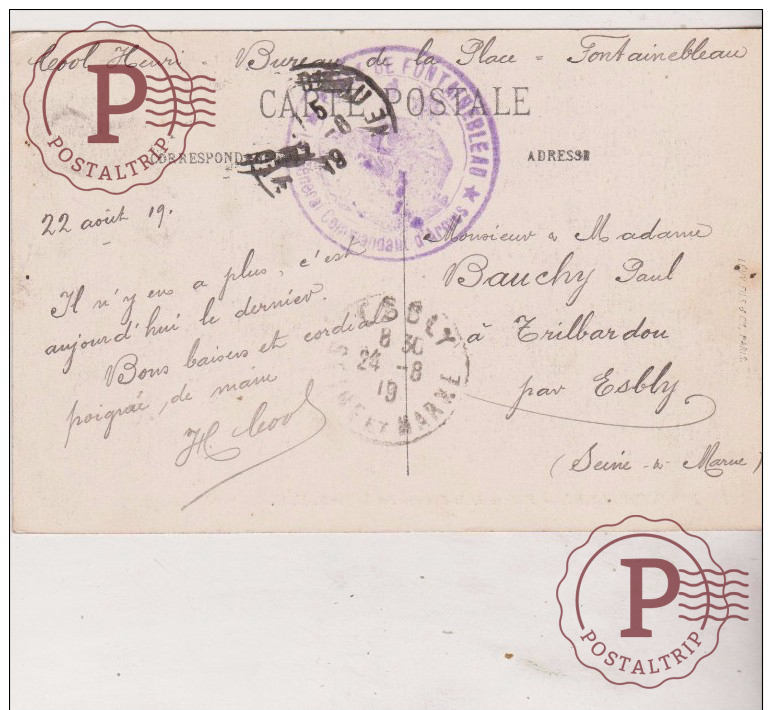 Cool Henri - Bureau de la Place = Fontainebleau
CARTE POSTALE
DE FONTAINEBLEAU
Général Commandant d'Armes
CORRESPONDANCE
ADRESSE
22 août 19.
Il n'y en a plus, c'est
aujourd'hui le dernier.
Bons baisers et cordiale
poignée de main
H. Cool
Monsieur & Madame
Bauchy Paul
à Trilbardou
par Esbly
(Seine-&-Marne)
ESBLY
8 30
24 -8
19
SEINE ET MARNE
P
POSTALTRIP
P
POSTALTRIP